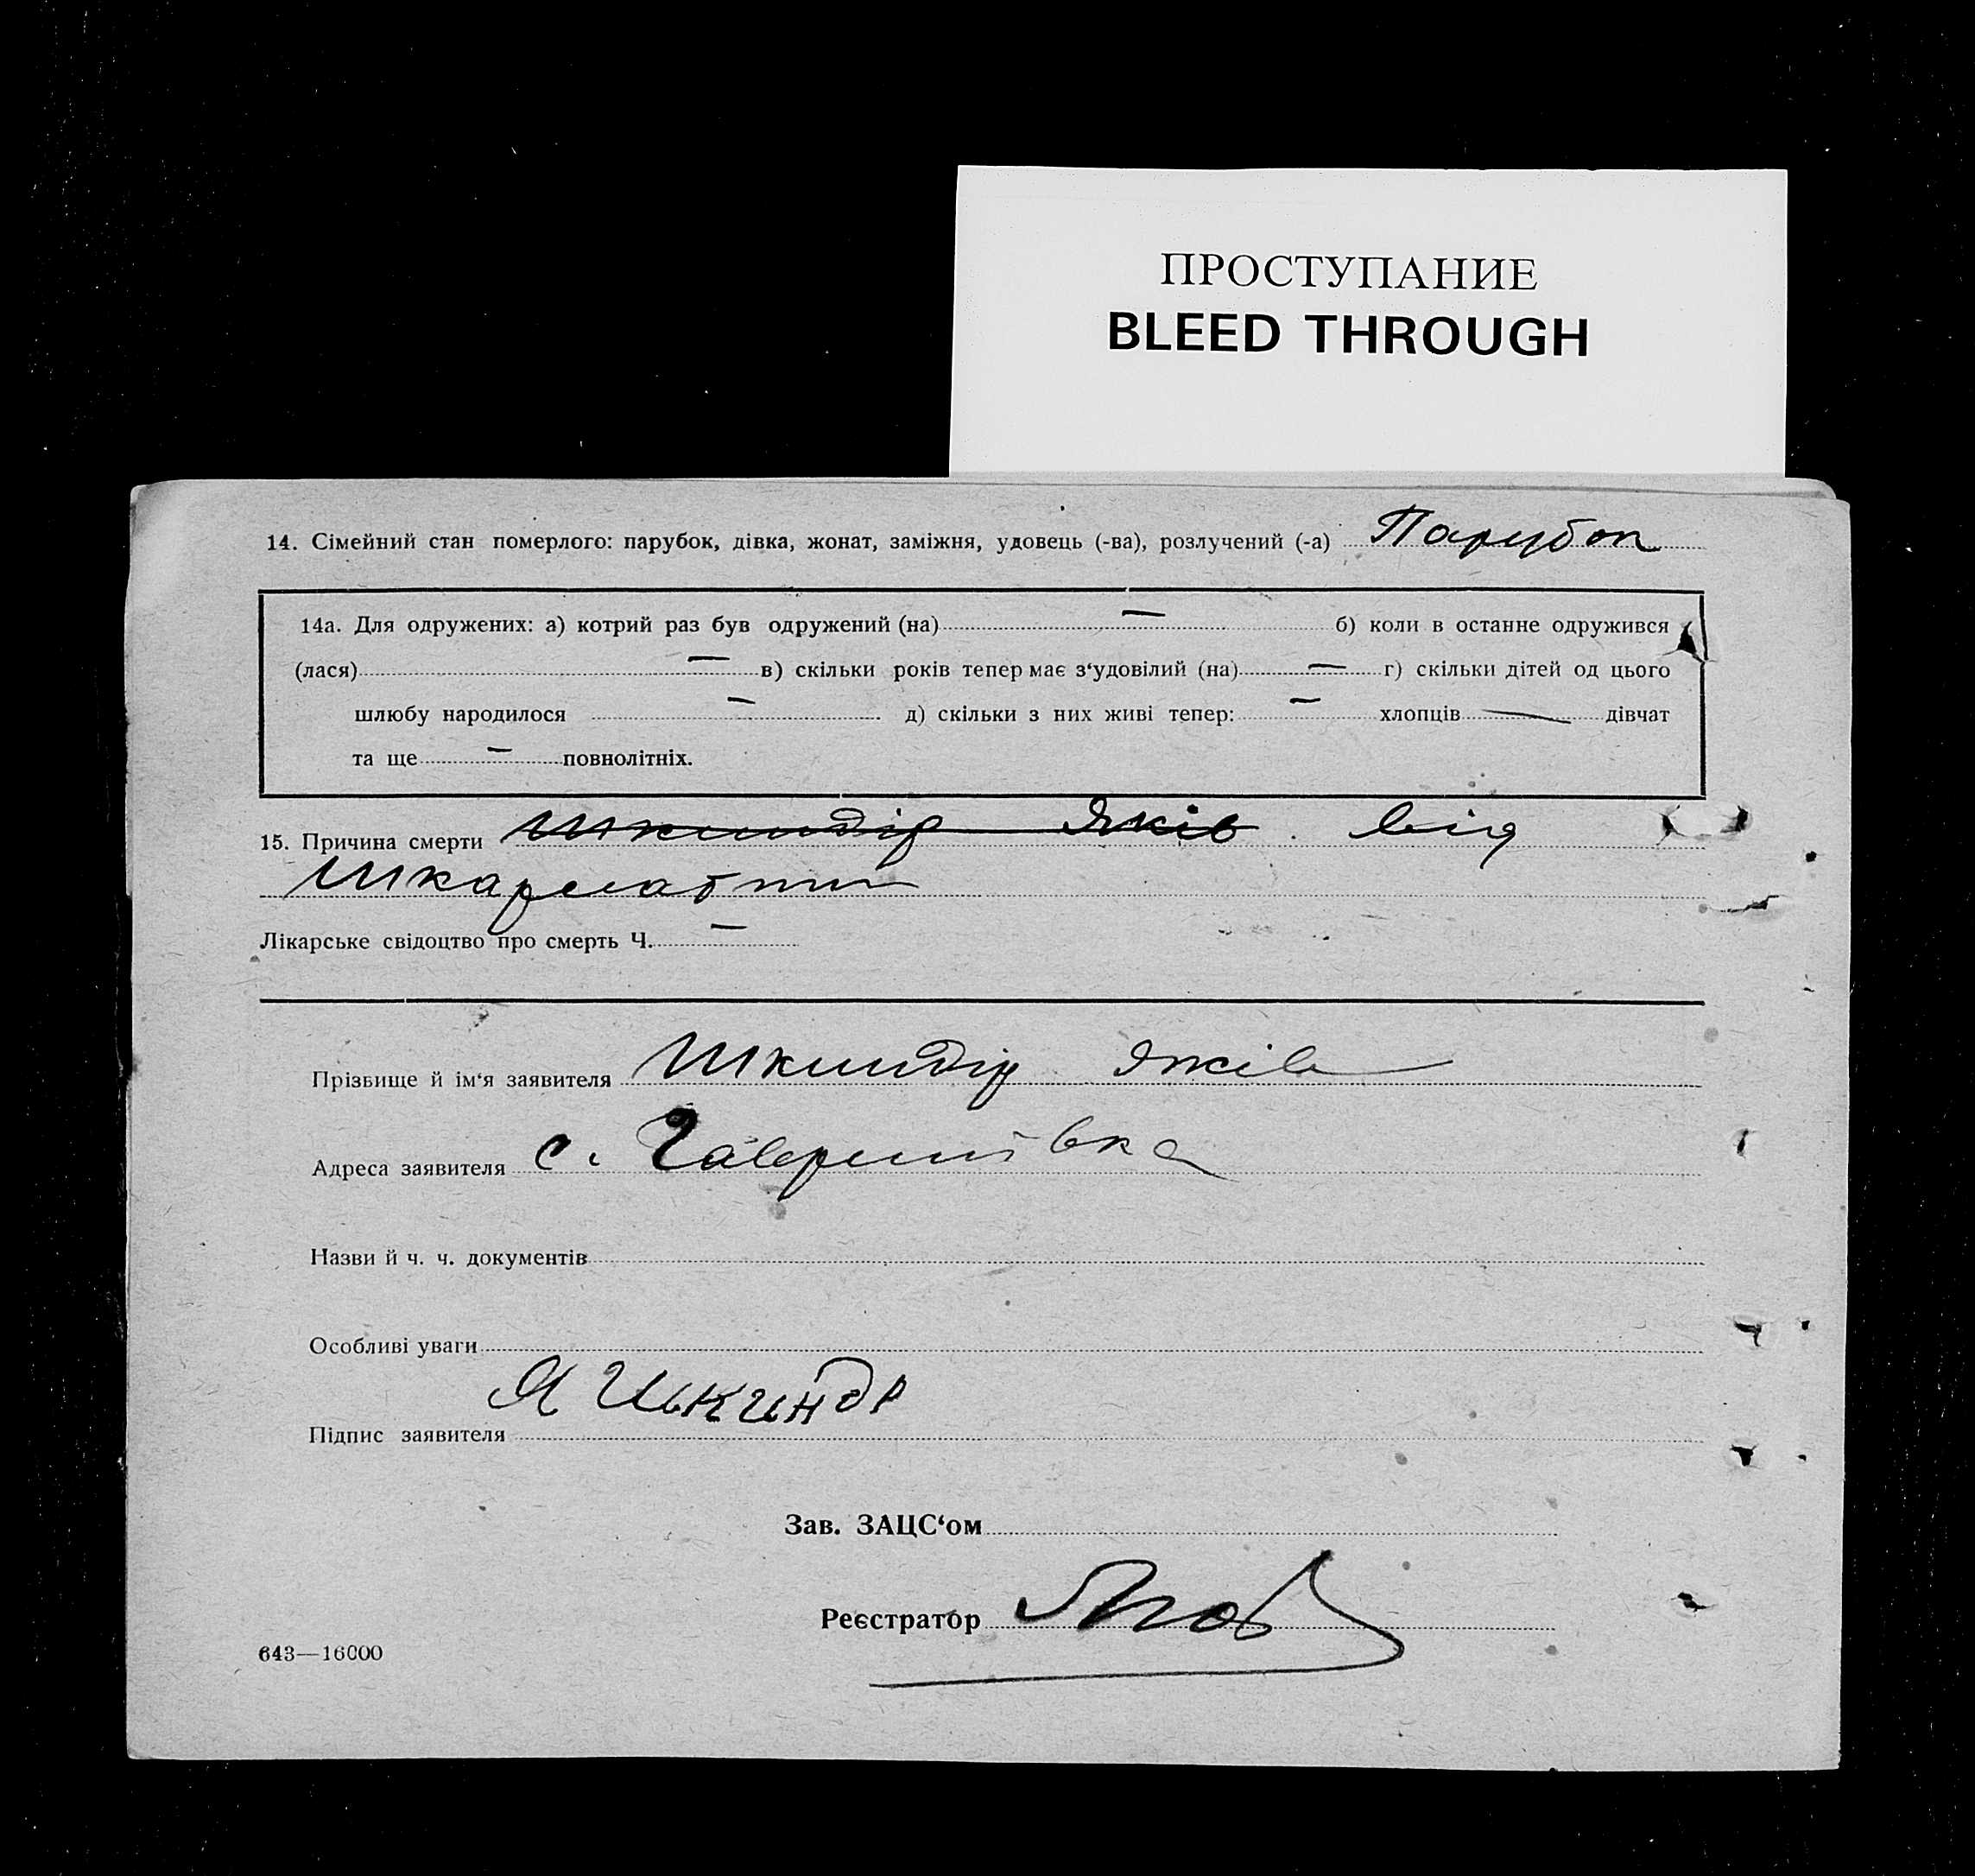 ПРОСТУПАНИЕ
BLEED THROUGH
14. Сімейний стан померлого: парубок, дівка, жонат, заміжня, удовець (-ва), розлучений (-а) Парубок
14а. Для одружених: а) котрий раз був одружений (на) — б) коли в останне одружився
(лася) — в) скільки років тепер має з‘удовілий (на) — г) скільки дітей од цього
шлюбу народилося — д) скільки з них живі тепер: — хлопців — дівчат
та ще — повнолітніх.
15. Причина смерти Шкиндір Яків від
Шкарлатини
Лікарське свідоцтво про смерть Ч. —
Прізвище й ім‘я заявителя Шкиндір Яків
Адреса заявителя с. Гаврилівка
Назви й ч. ч. документів
Особливі уваги
Я Шкиндр
Підпис заявителя
Зав. ЗАЦС‘ом
Реєстратор
643—16000